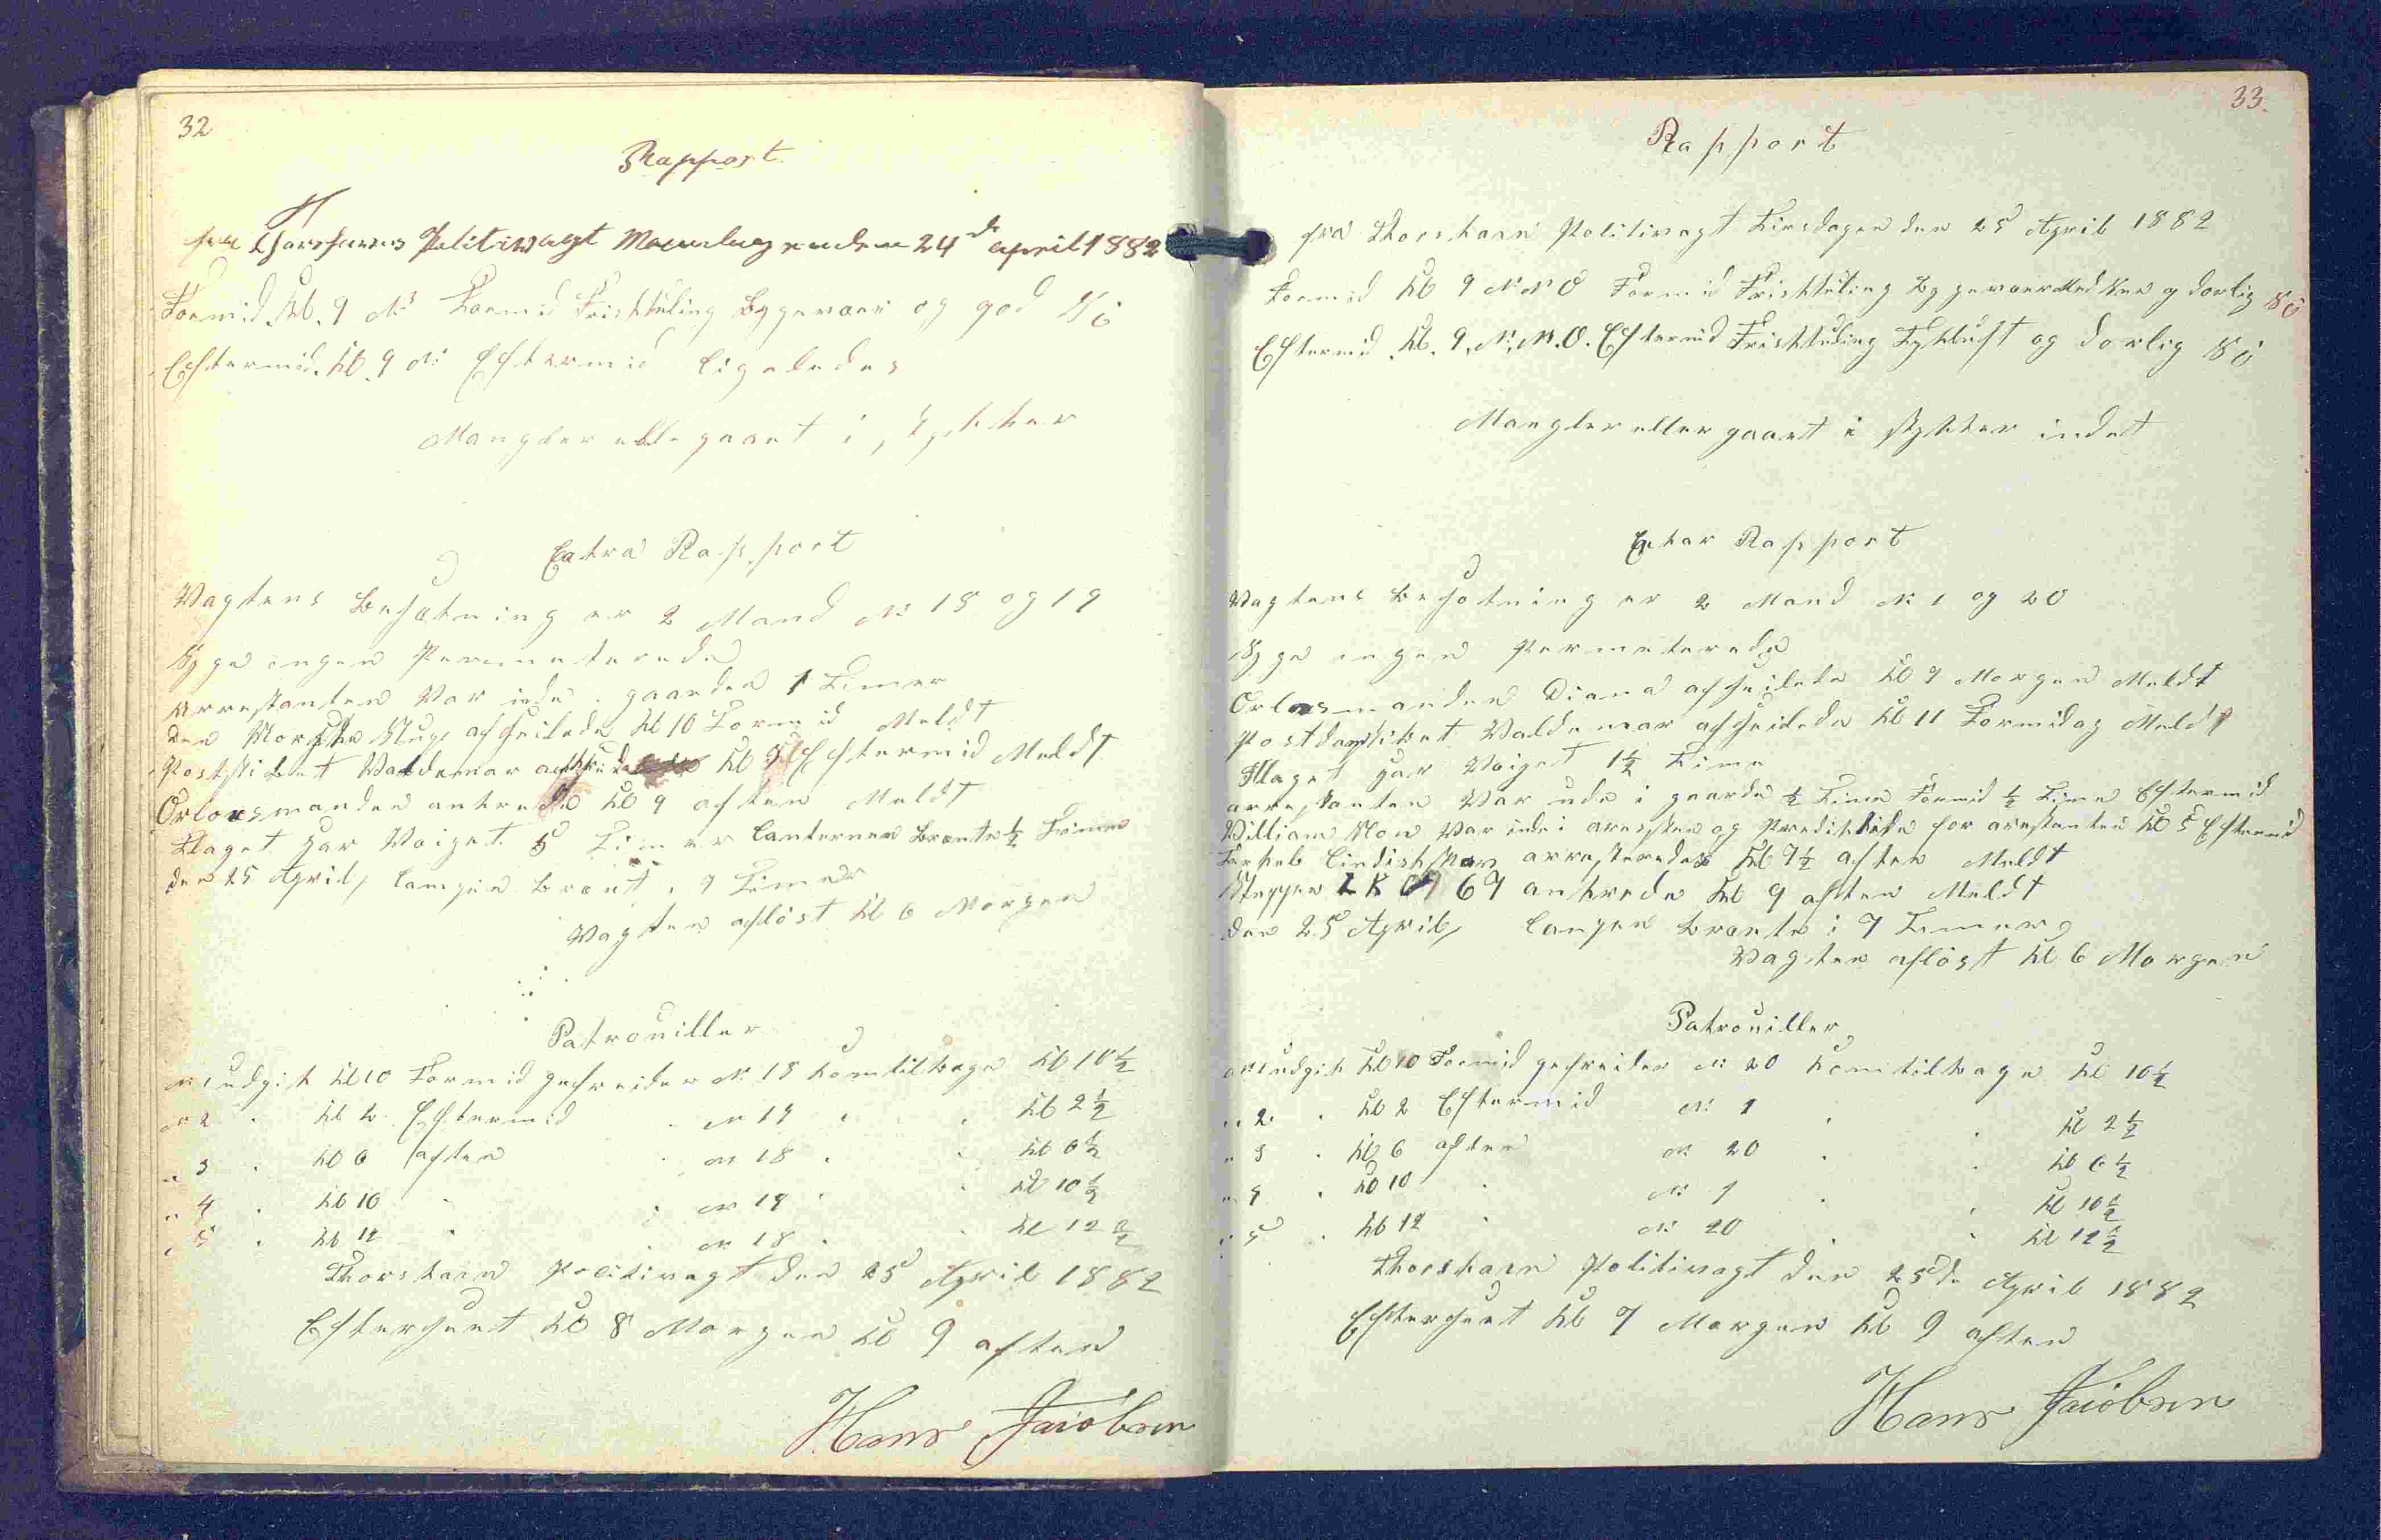 32
Rapport
fra Thorshavns Politivagt Mandagen den 24de april 1882
Formid. Kl. 9 N: Formid Friskkuling Bygevær og god Sö
Eftermid. Kl. 9 N: Eftermid ligeledes
Mangler elle gaaet i stykker
Extra Rapport
Vagtens Besætning er 2 Mand N: 18 og 19
Syge ingen Permeterede
Arrestanten Var inde i gaarden 1 Timer
Den Norske Slup afseilede Kl 10 Formid Meldt
Postskibet Valdemar Kl Eftermid Meldt
Orlovsmanden ankrede Kl 9 aften Meldt
Flaget har Vaiget 5 Timer Lanternen Brænte 1/2 Time
den 25 April, lampen brænt i 9 Timer
Vagten aflöst Kl 6 Morgen
Patrouiller
N 1 udgik Kl 10 Formid gefreider N: 18 kom tilbage Kl 10 1/2
" 2 " Kl 2 Eftermid " N 19 " " Kl 2 1/2
" 3 " Kl 6 aften " N 18 " " Kl 6 1/2
" 4 " Kl 10 " " N 19 " " Kl 10 1/2
" 5 " Kl 12 " " N 18 " " Kl 12 1/2
Thorshavn Politivagt den 25 April 1882
Efterseet Kl 8 Morgen Kl 9 aften
Hans Jacobsen
33.
Rapport
fra Thorshavn Politivagt Tirsdagen den 25 April 1882
Formid Kl 9 N.N.O Formid Friskkuling Bygevær Med Sne og dorlig Sö
Eftermid. Kl. 9. N.N.O. Eftermid Friskkuling Tykluft og dorlig Sö
Mangler eller gaaet i stykker indet
Extar Rapport
Vagtens Besotning er 2 Mand N: 1 og 20
Syge ingen Permeterede
Orlovsmanden Diana afseilede Kl 9 Morgen Meldt
Postdampskibet Valdemar afseilede Kl 11 Formidag Meldt
Flaget har Vaiget 1 1/2 Time
arrestanten Var ude i gaarde 1/2 Time Formid 1/2 Time Eftermid
William Slon Var inde i aresten og for arestanten Kl 5 Eftermid
arresteredes Kl 7 1/2 aften Meldt
67 ankrede Kl 9 aften Meldt
den 25 April, lampen brænte i 9 Timer
Vagten aflöst Kl 6 Morgen
Patrouiller
N 1 udgik Kl 10 Formid gefreider N: 20 kom tilbage Kl 10 1/2
" 2 " Kl 2 Eftermid N: 1 " " Kl 2 1/2
" 3 " Kl 6 aften N: 20 " " Kl 6 1/2
" 4 " Kl 10 " N: 1 " " Kl 10 1/2
" 5 " Kl 12 " N: 20 " " Kl 12 1/2
Thorshavn Politivagt den 25de April 1882
Efterseet Kl 7 Morgen Kl 9 aften
Hans Jacobsen